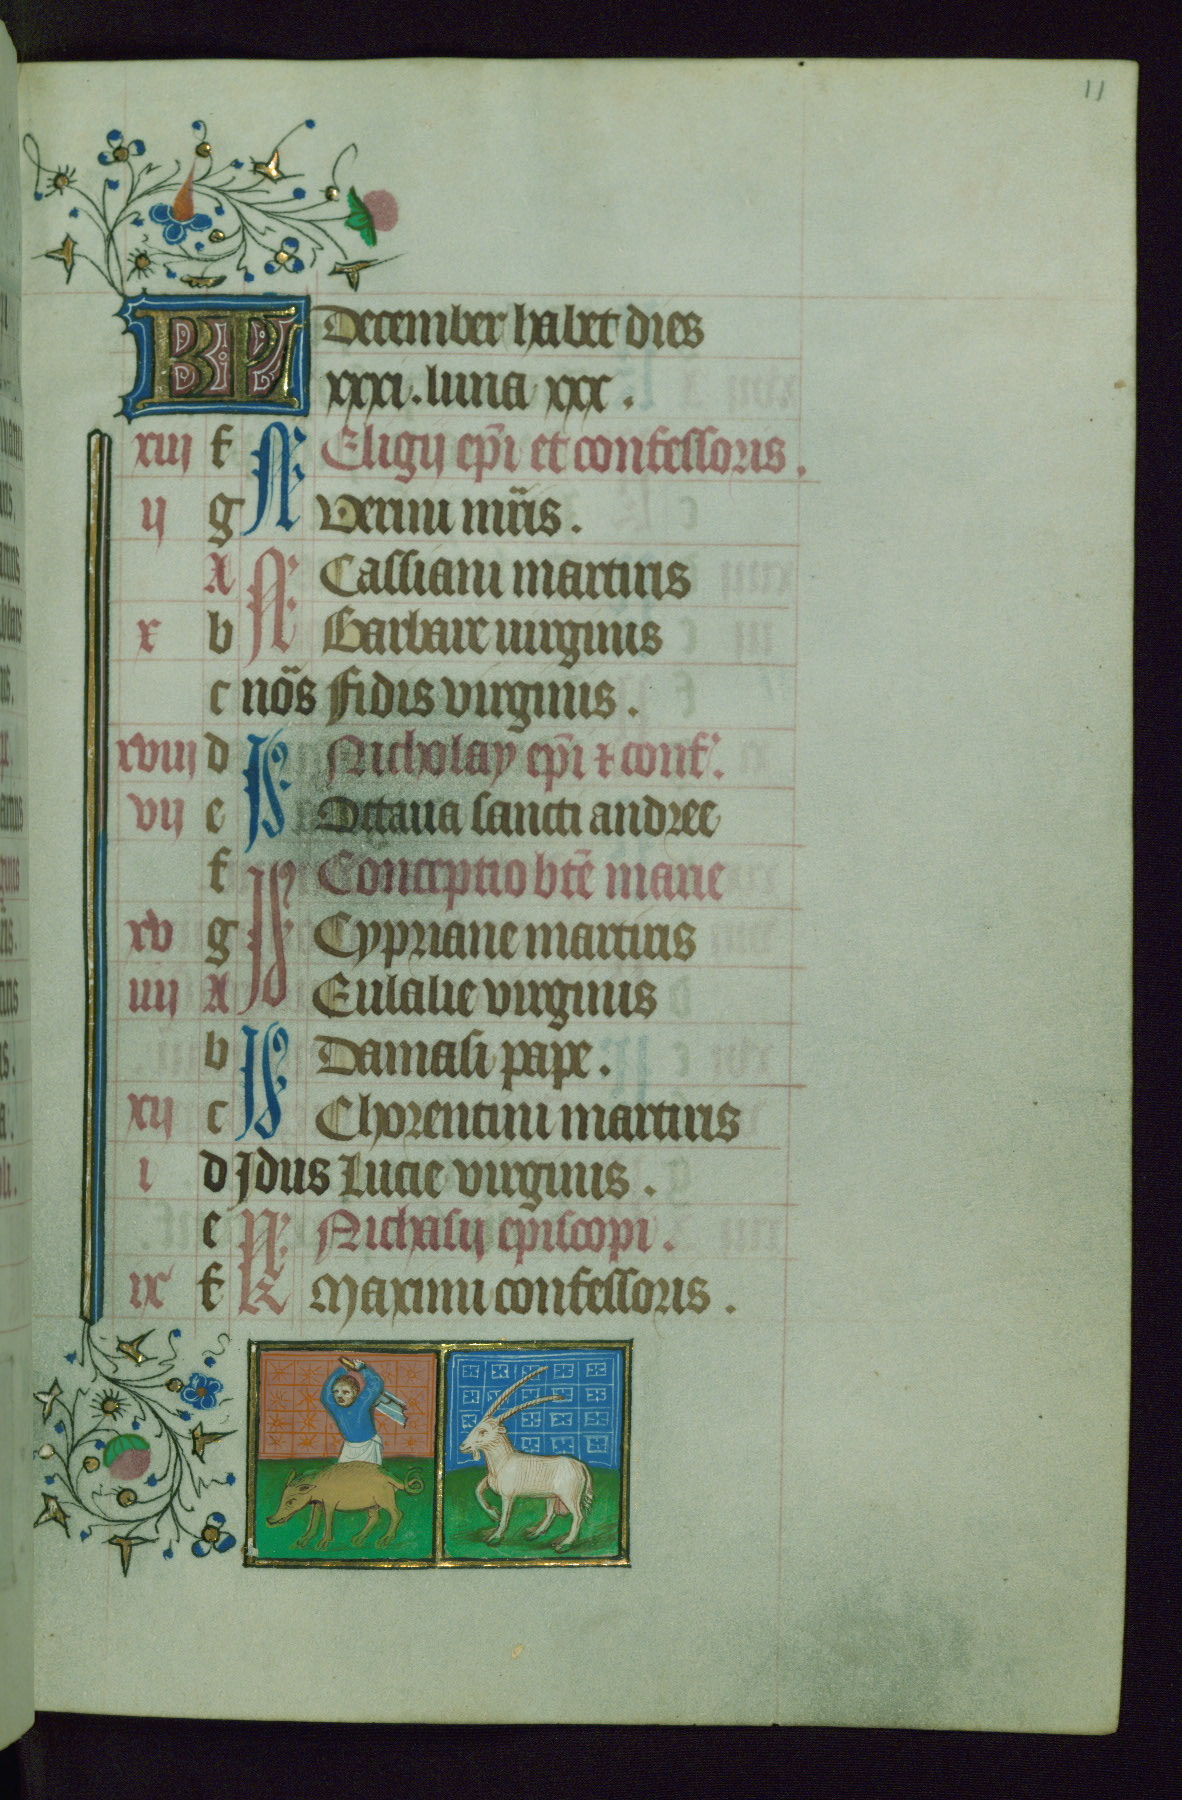 11
KL December habet dies
xxxi. luna xxx.
xiii f N Eligii ep̄i et confessoris.
ii g Verini mr̄is.
A N Cassiani martiris
x b Barbare uirginis
c nōs Fidis virginis.
xviii d Id Nicholay ep̄i ⁊ conf'.
vii e Octaua sancti andree
f Id Conceptio btē marie
xv g Cypriane martiris
iiii A Eulalie virginis
b Id Damasi pape.
xii c Chorentini martiris
i d Idus Lucie virginis.
e Nichasii episcopi.
ix f k Maximi confessoris.